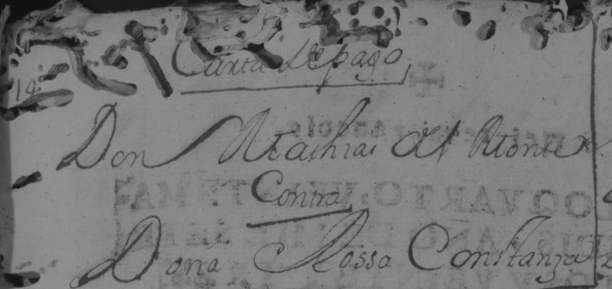 Carta de pago
14
Don Mathias del Monte
Contra
Dona Rossa Constanza